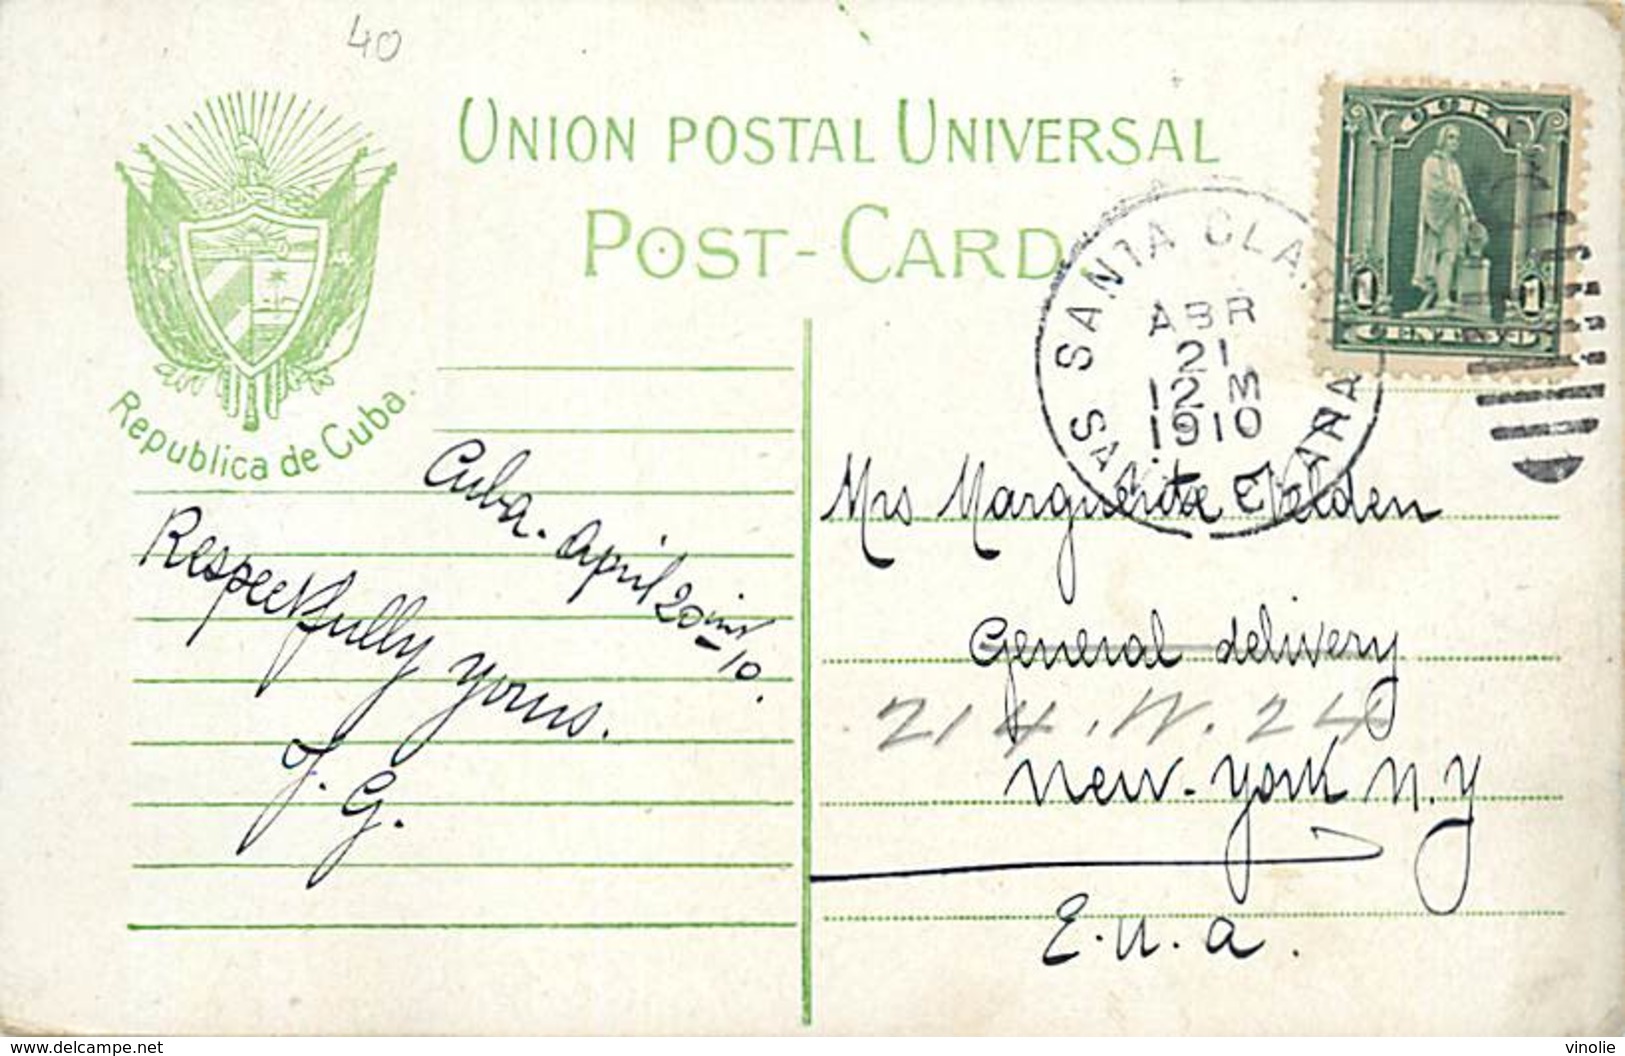 40
UNION POSTAL UNIVERSAL
POST-CARD
Republica de Cuba.
CUBA
1 1
CENTAVO
SANTA CLARA
ABR
21
12 M
1910
SANTA CLARA
Cuba. April 20
10.
Respectfully yours.
J. G.
Mrs Marguerite Welden
General delivery
214. W. 24
New-York N.Y
E.U.A.
www.delcampe.net
vinolie